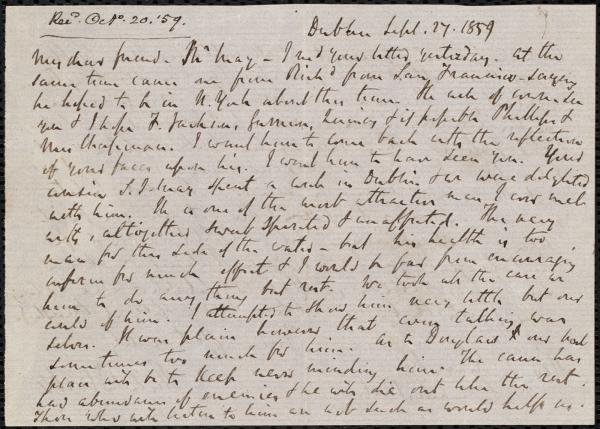 Recd. Octr. 20. '59.
Dublin Sept. 27. 1859
My dear friend - Mr May - I recd your letter yesterday. At the
same time came one from Richd from San Francisco - saying
he hoped to be in N. York about this time. He will of course see
you & I hope F. Jackson, Garrison, Quincy & if possible Phillips &
Mrs Chapman. I want him to come back with the reflection
of your faces upon his. I want him to have seen you. Your
cousin S. J. May spent a week in Dublin & we were delighted
with him. He is one of the most attractive men I ever met
with, altogether sweet spirited & unaffected. The very
man for this side of the water - but his health is too
infirm for much effort & I would be far from encouraging
him to do any thing but rest. We took all the care we
could of him. I attempted to show him very little but our
selves. It was plain however that even talking was
sometimes too much for him. As to Douglass our best
plan will be to keep never minding him. The cause has
had abundance of enemies & he will die out like the rest.
Those who will listen to him are not such as would help us.